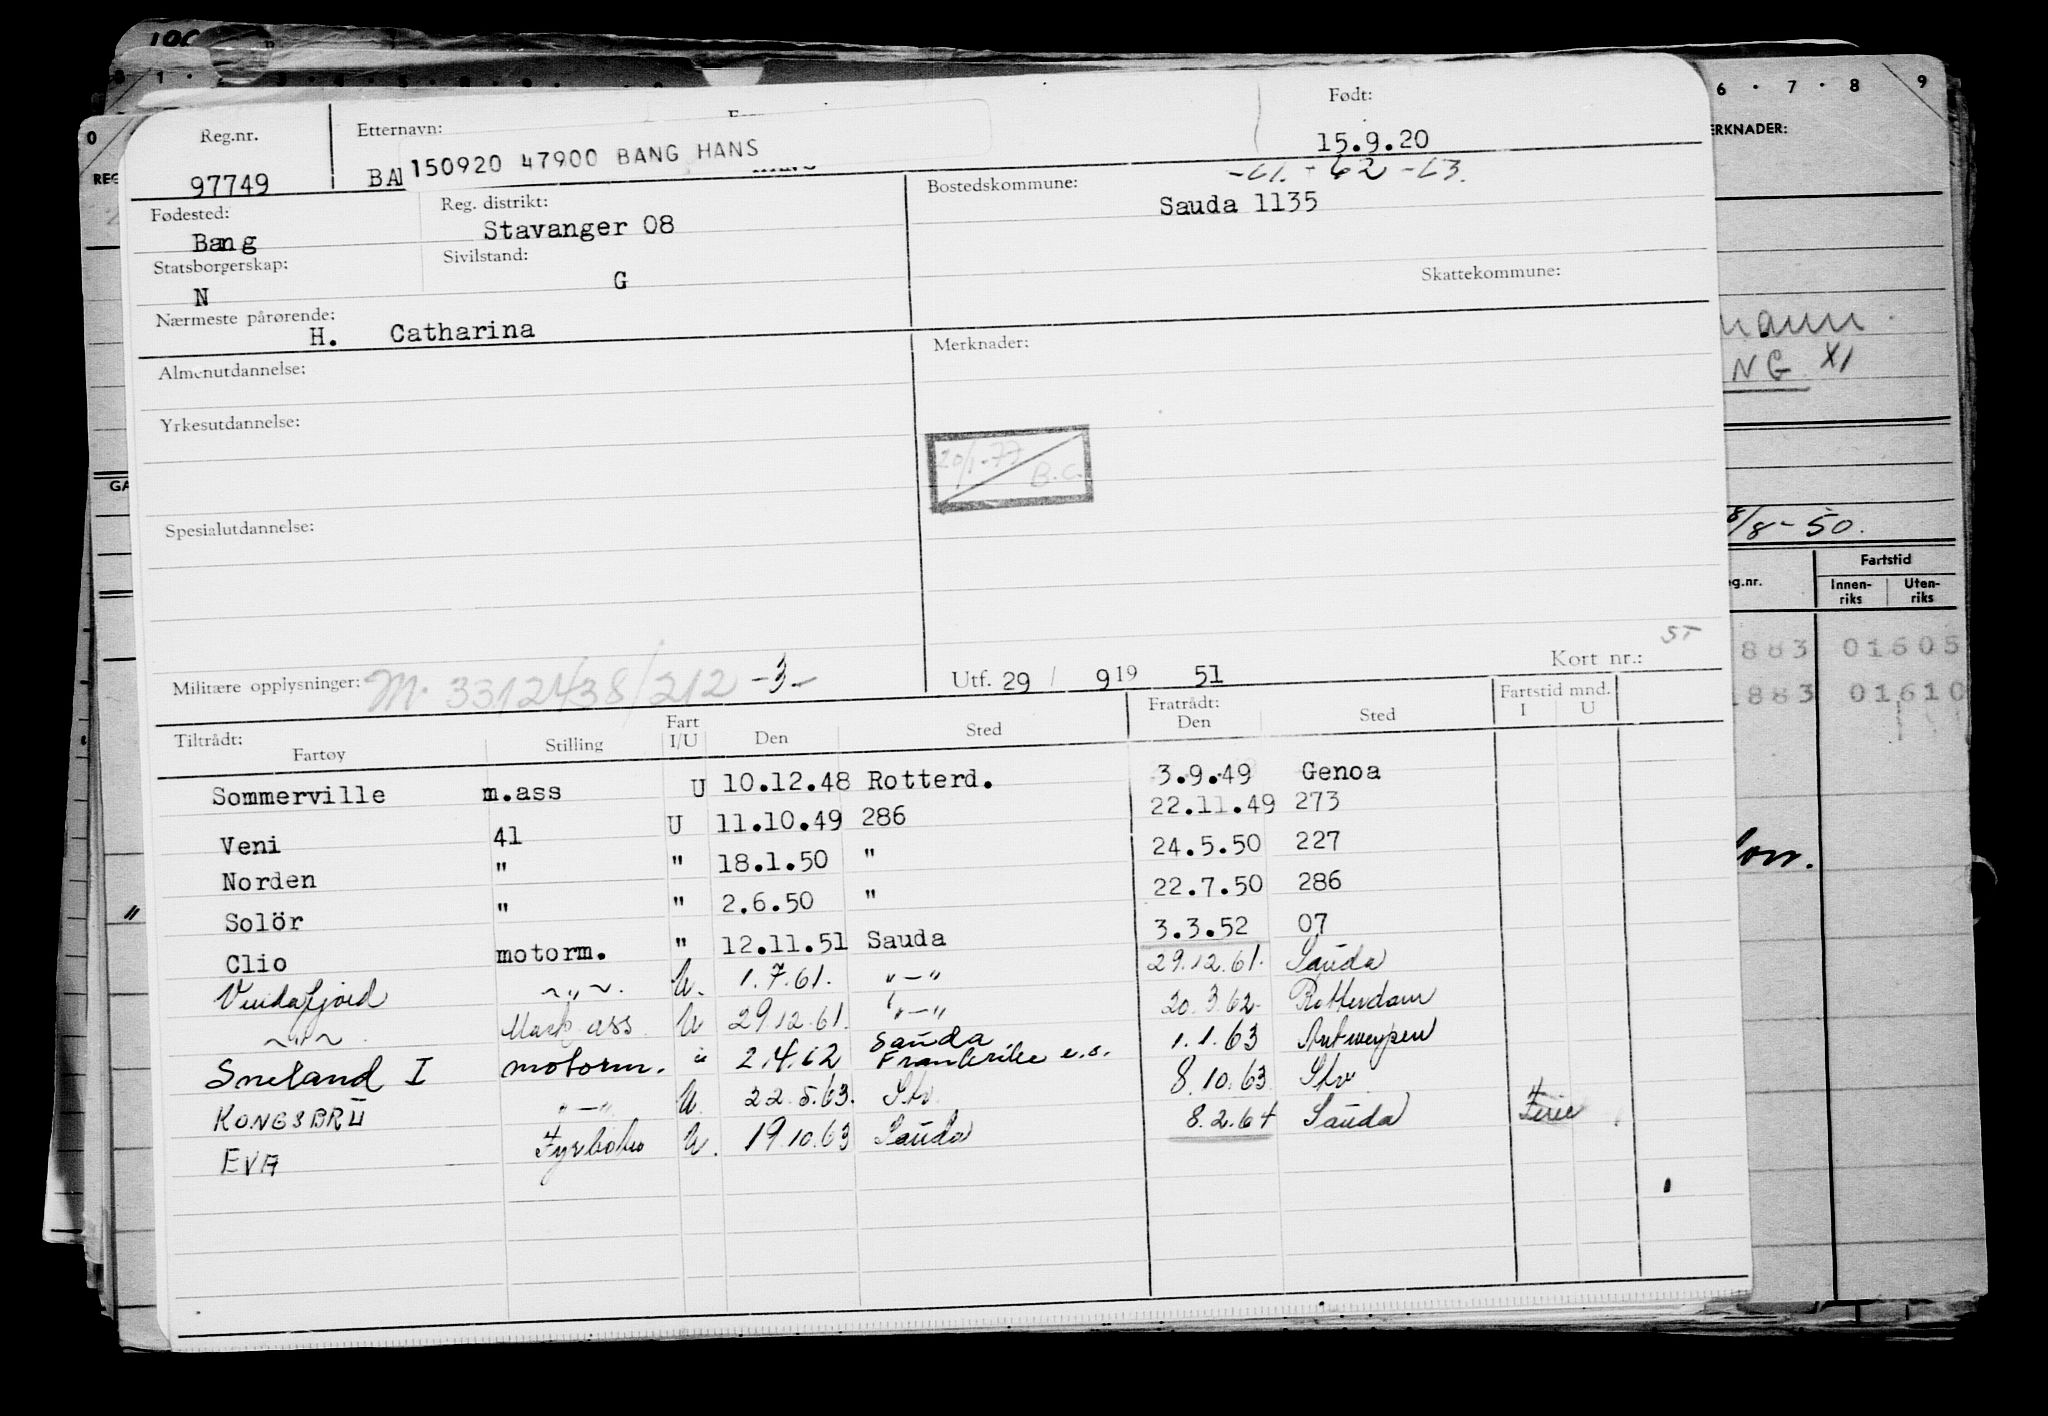 Reg.nr. Etternavn: Født:
97749 BAN 150920 47900 BANG HANS 15.9.20
-61. - 62 - 63.
Fødested: Reg. distrikt: Bostedskommune:
Bang Stavanger 08 Sauda 1135
Statsborgerskap: Sivilstand: Skattekommune:
N G
Nærmeste pårørende:
H. Catharina
Almenutdannelse: Merknader:
Yrkesutdannelse:
20/1-77 B.C.
Spesialutdannelse:
ST
Militære opplysninger: M. 3312438/212 -3- Utf. 29 / 9 19 51 Kort nr.:
Tiltrådt: Fratrådt: Fartstid mnd.
Fartøy Stilling Fart I/U Den Sted Den Sted I U
Sommerville m.ass U 10.12.48 Rotterd. 3.9.49 Genoa
Veni 41 U 11.10.49 286 22.11.49 273
Norden " " 18.1.50 " 24.5.50 227
Solör " " 2.6.50 " 22.7.50 286
Clio motorm. " 12.11.51 Sauda 3.3.52 07
Vindafjord ~„~. U. 1.7.61. „-„ 29.12.61. Sauda
~„~ Mask ass U 29.12.61. „-„ 20.3.62 Rotterdam
Sneland I motorm. " 2.4.62 Sauda Frankrike e.s. 1.1.63 Antwerpen
KONGSBRU „-„ U. 22.5.63. Stv 8.10.63 Stv
EVA Fyrbøter U. 19.10.63 Sauda 8.2.64 Sauda Ferie
0 1
6 · 7 · 8 9
MERKNADER:
NG XI
8/8-50.
Fartstid
Innen-riks Uten-riks
883 01605
1883 01610